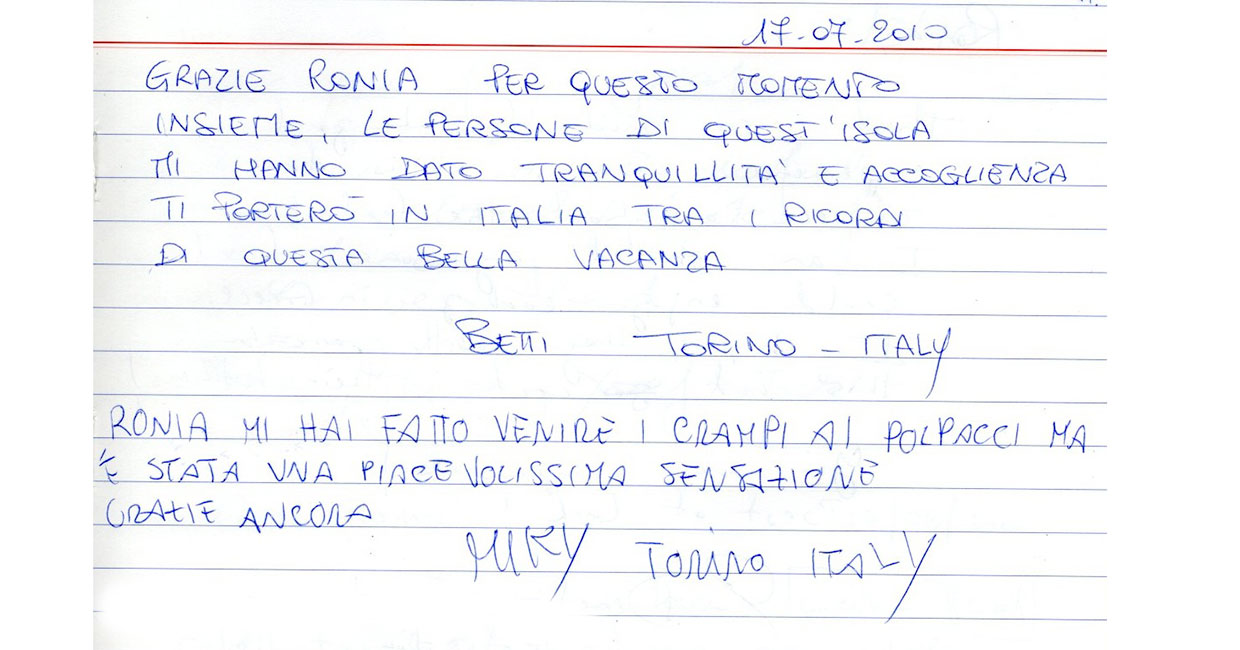 17-07-2010
GRAZIE RONIA PER QUESTO MOMENTO
INSIEME, LE PERSONE DI QUEST'ISOLA
MI HANNO DATO TRANQUILLITA' E ACCOGLIENZA
TI PORTERÒ IN ITALIA TRA I RICORDI
DI QUESTA BELLA VACANZA
BETTI TORINO - ITALY
RONIA MI HAI FATTO VENIRE I CRAMPI AI POLPACCI MA
È STATA UNA PIACEVOLISSIMA SENSAZIONE
GRAZIE ANCORA
MIRY TORINO ITALY